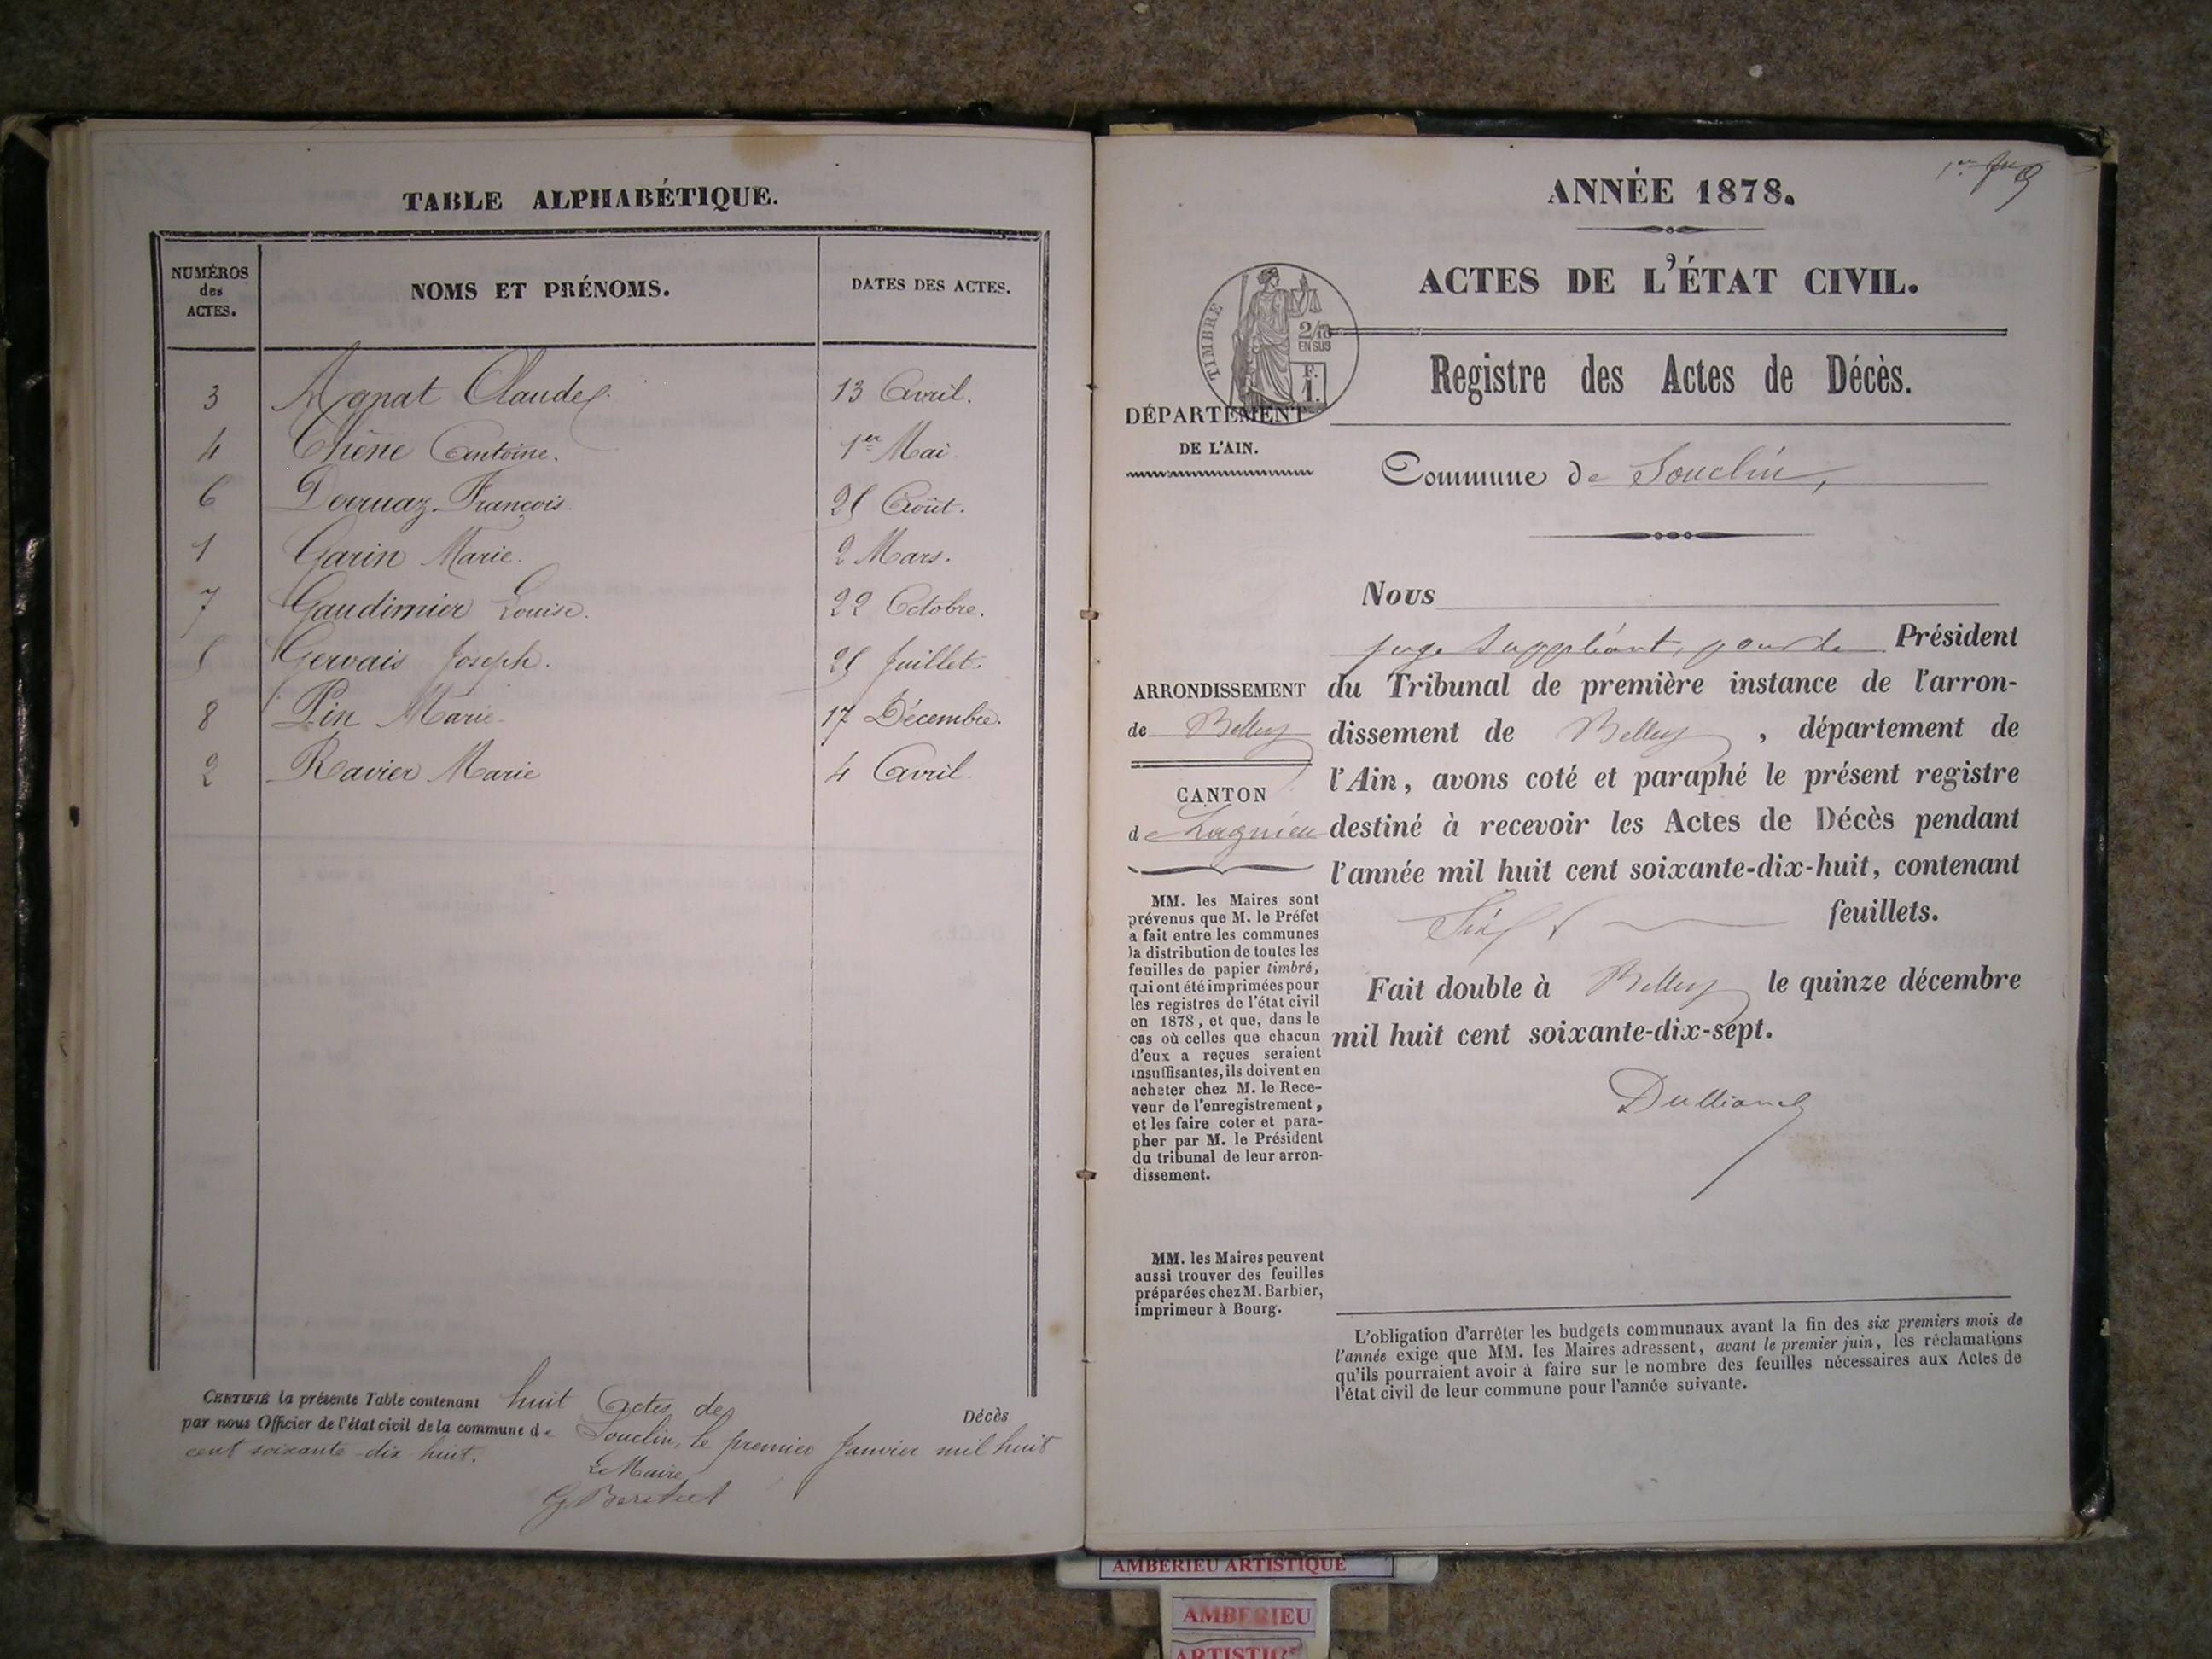 TABLE ALPHABÉTIQUE.
NUMÉROS des ACTES.
NOMS ET PRÉNOMS.
DATES DES ACTES.
3 Agnat Claude. 13 Avril.
4 Chêne Antoine. 1er Mai.
6 François. 25 Août.
1 Garin Marie. 2 Mars.
7 Gaudimier Louise. 22 Octobre.
5 Gervais Joseph. 25 Juillet.
8 Pin Marie 17 Décembre.
2 Ravier Marie 4 Avril.
CERTIFIÉ la présente Table contenant huit Actes de Décès
par nous Officier de l'état civil de la commune de Souclin, le premier Janvier mil huit
cent soixante-dix huit.
Le Maire
1er
ANNÉE 1878.
ACTES DE L'ÉTAT CIVIL.
TIMBRE
2/10
EN SUS
F.
1.
Registre des Actes de Décès.
DÉPARTEMENT
DE L'AIN.
Commune de Souclin,
Nous
juge suppléant, pour le Président
ARRONDISSEMENT
de Belley
CANTON
de Lagnieu
du Tribunal de première instance de l'arron-
dissement de Belley, département de
l'Ain, avons coté et paraphé le présent registre
destiné à recevoir les Actes de Décès pendant
l'année mil huit cent soixante-dix-huit, contenant
Six feuillets.
Fait double à Belley le quinze décembre
mil huit cent soixante-dix-sept.
MM. les Maires sont
prévenus que M. le Préfet
a fait entre les communes
la distribution de toutes les
feuilles de papier timbré,
qui ont été imprimées pour
les registres de l'état civil
en 1878, et que, dans le
cas où celles que chacun
d'eux a reçues seraient
insuffisantes, ils doivent en
acheter chez M. le Rece-
veur de l'enregistrement,
et les faire coter et para-
pher par M. le Président
du tribunal de leur arron-
dissement.
MM. les Maires peuvent
aussi trouver des feuilles
préparées chez M. Barbier,
imprimeur à Bourg.
L'obligation d'arrêter les budgets communaux avant la fin des six premiers mois de
l'année exige que MM. les Maires adressent, avant le premier juin, les réclamations
qu'ils pourraient avoir à faire sur le nombre des feuilles nécessaires aux Actes de
l'état civil de leur commune pour l'année suivante.
AMBERIEU ARTISTIQUE
AMBERIEU
ARTISTIQUE